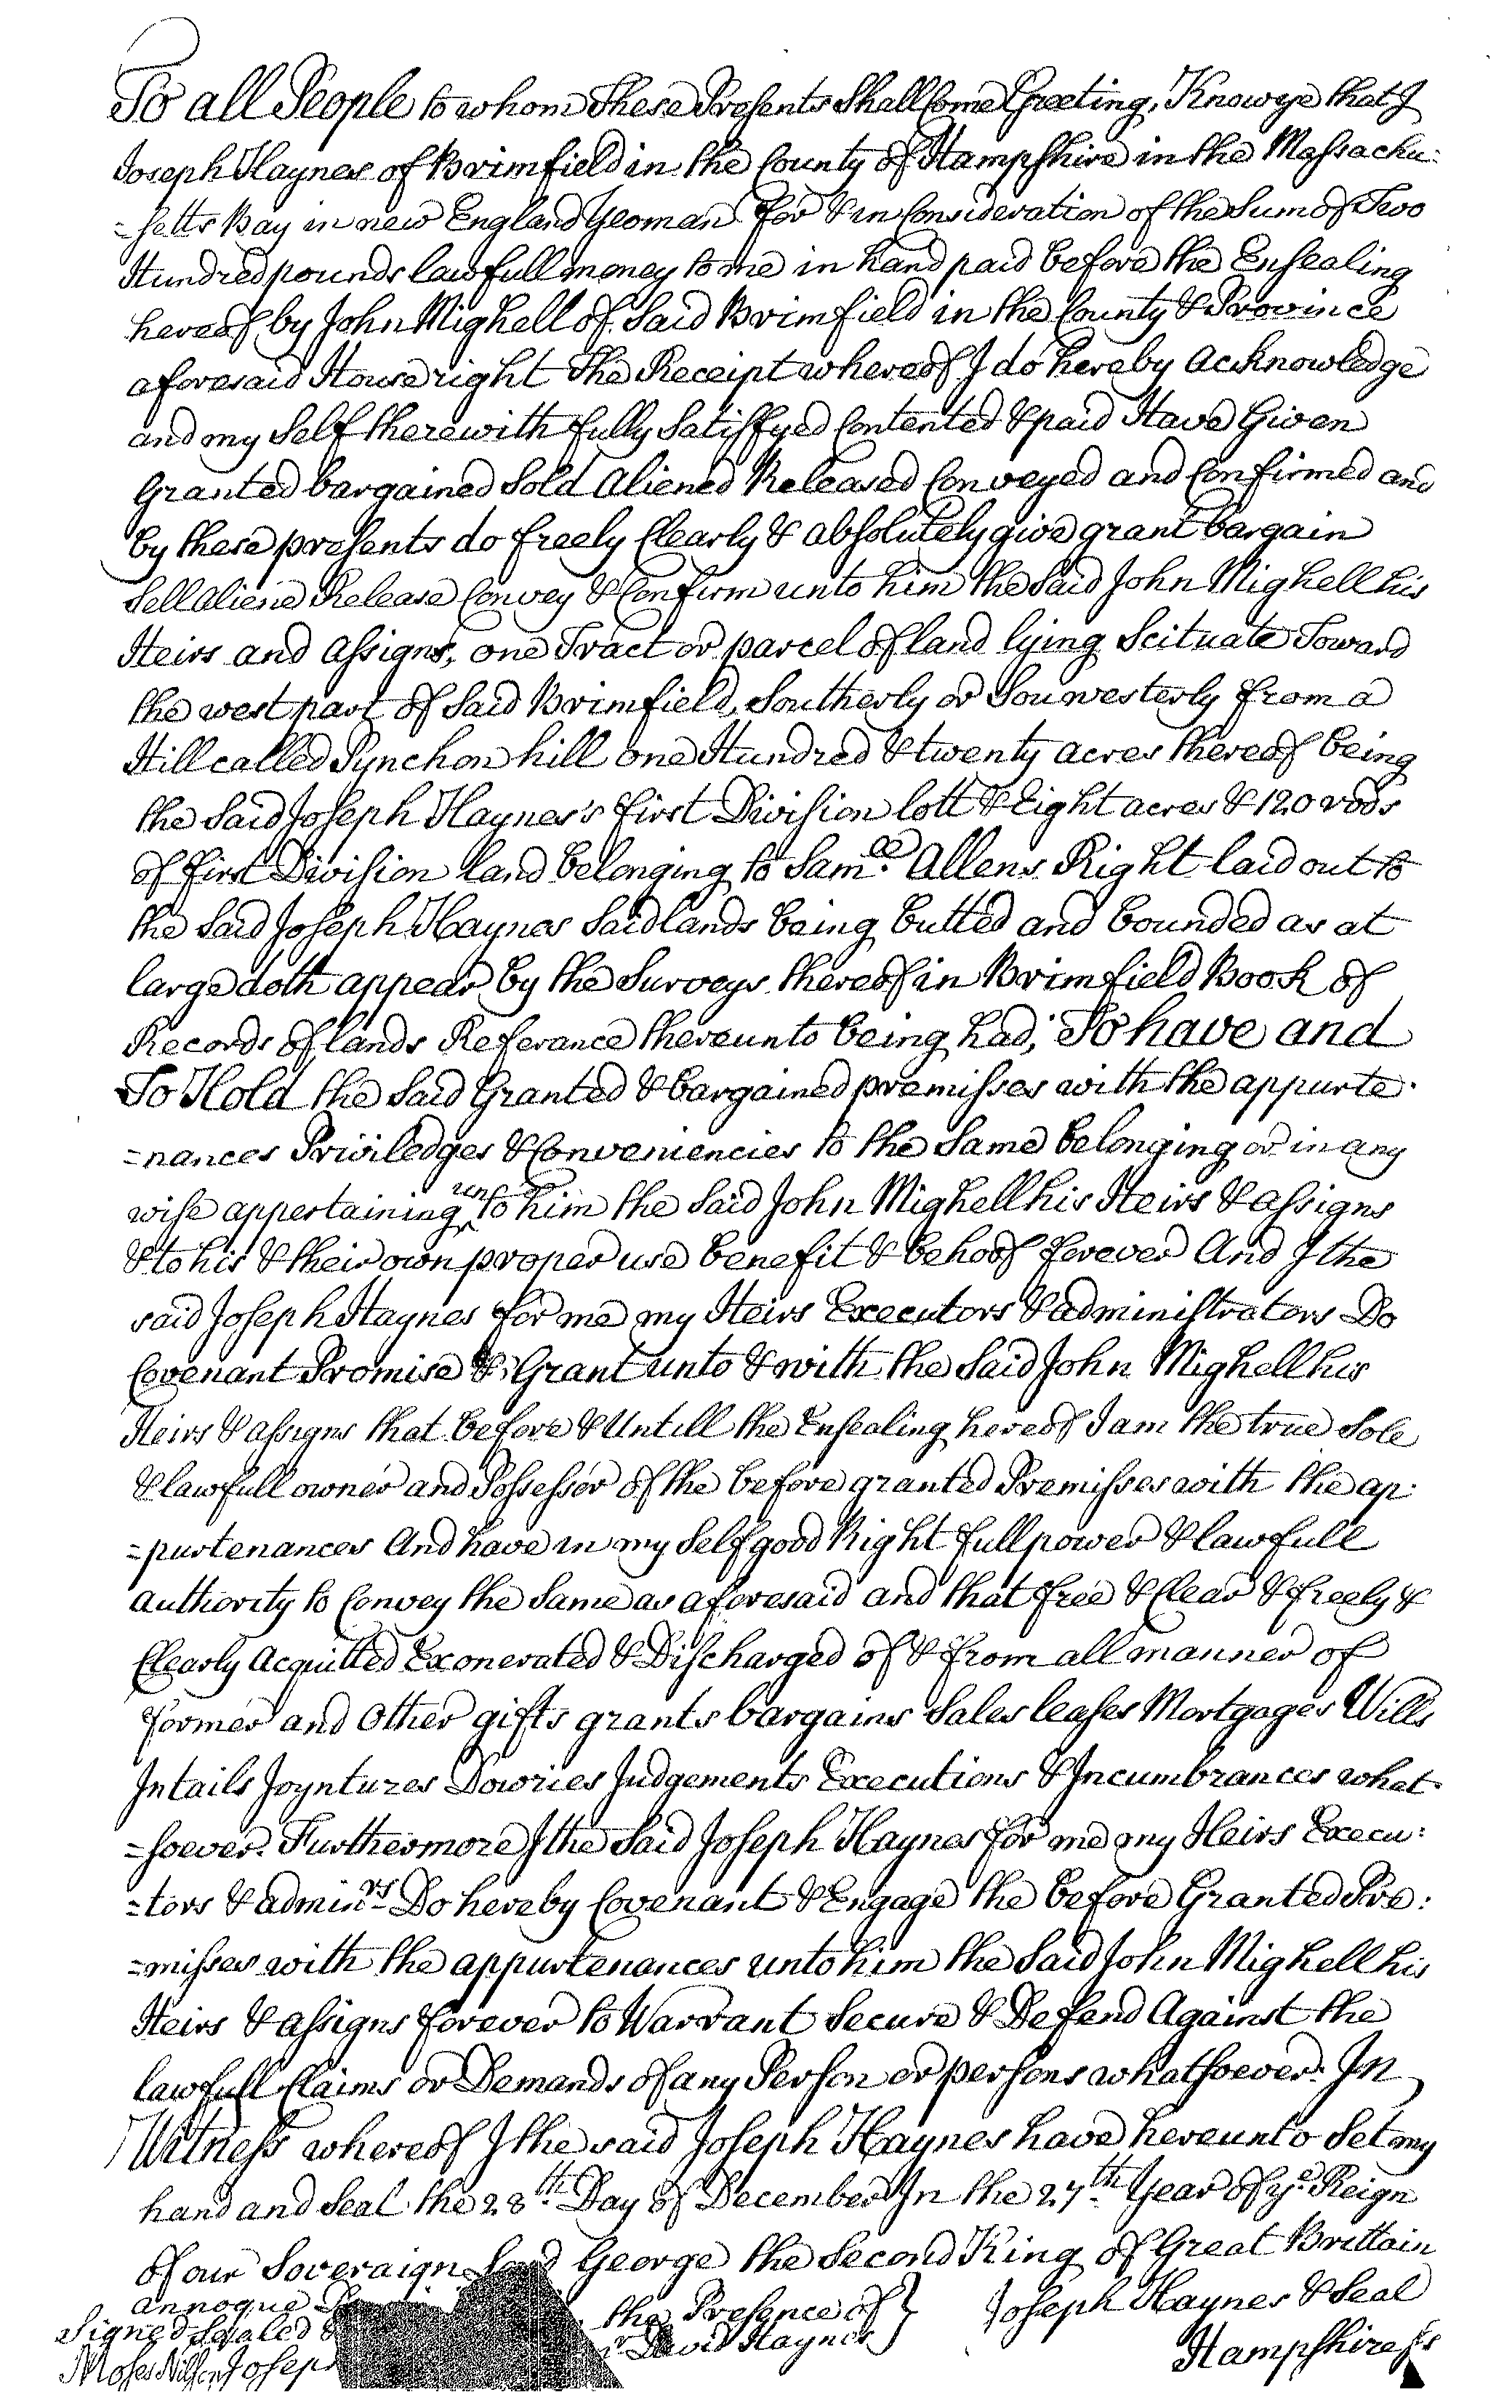 To all People to whom These Presents Shall Come Greeting, Know ye that I
Joseph Haynes of Brimfield in the County of Hampshire in the Massachu:
=setts Bay in new England Yeoman for & in Consideration of the Sum of Two
Hundred pounds lawfull money to me in hand paid before the Ensealing
hereof by John Mighell of Said Brimfield in the County & Province
aforesaid Houseright The Receipt whereof I do hereby acknowledge
and my Self therewith fully Satisfyed Contented & paid Have Given
Granted bargained Sold Aliened Released Conveyed and Confirmed and
by these presents do freely Clearly & absolutely give grant bargain
Sell aliene Release Convey & Confirm unto him the Said John Mighell his
Heirs and Assigns, one Tract or parcel of land lying Scituate Toward
the west part of Said Brimfield, Southerly or Souwesterly from a
Hill called Pynchon hill one Hundred & twenty acres thereof being
the Said Joseph Haynes's first Division lott & Eight acres & 120 rods
of first Division land belonging to Sam.ll Allens Right laid out to
the Said Joseph Haynes Said lands being butted and bounded as at
large doth appear by the Surveys thereof in Brimfield Book of
Records of lands Referance thereunto being had; To have and
To Hold the Said Granted & bargained premisses with the appurte:
=nances Priviledges & Conveniencies to the Same belonging or in any
wise appertaining unto him the Said John Mighell his Heirs & assigns
& to his & their own proper use benefit & behoof forever And I the
said Joseph Haynes for me my Heirs Executors & administrators Do
Covenant Promise & Grant unto & with the Said John Mighell his
Heirs & assigns that before & Untill the Ensealing hereof I am the true Sole
& lawfull owner and Possessor of the before granted Premisses with the ap:
=purtenances And have in my Self good Right full power & lawfull
authority to Convey the Same as aforesaid and that free & Clear & freely &
Clearly Acquitted Exonerated & Discharged of & from all manner of
former and Other gifts grants bargains Sales leases Mortgages Wills
Intails Joyntures Dowries Judgements Executions & Incumbrances what
=soever. Furthermore I the Said Joseph Haynes for me my Heirs Execu:
=tors & admin.rs Do hereby Covenant & Engage the before Granted Pre:
=misses with the appurtenances unto him the Said John Mighell his
Heirs & assigns forever to Warrant Secure & Defend Against the
lawfull Claims or Demands of any Person or persons whatsoever. In
Witness whereof I the said Joseph Haynes have hereunto Set my
hand and Seal the 28th Day of December In the 27th Year of ye Reign
of our Soveraign Lord George the Second King of Great Brittain
annoque
Signed Sealed & the Presence of } Joseph Haynes & Seal
Moses Joseph David Haynes Hampshire ss